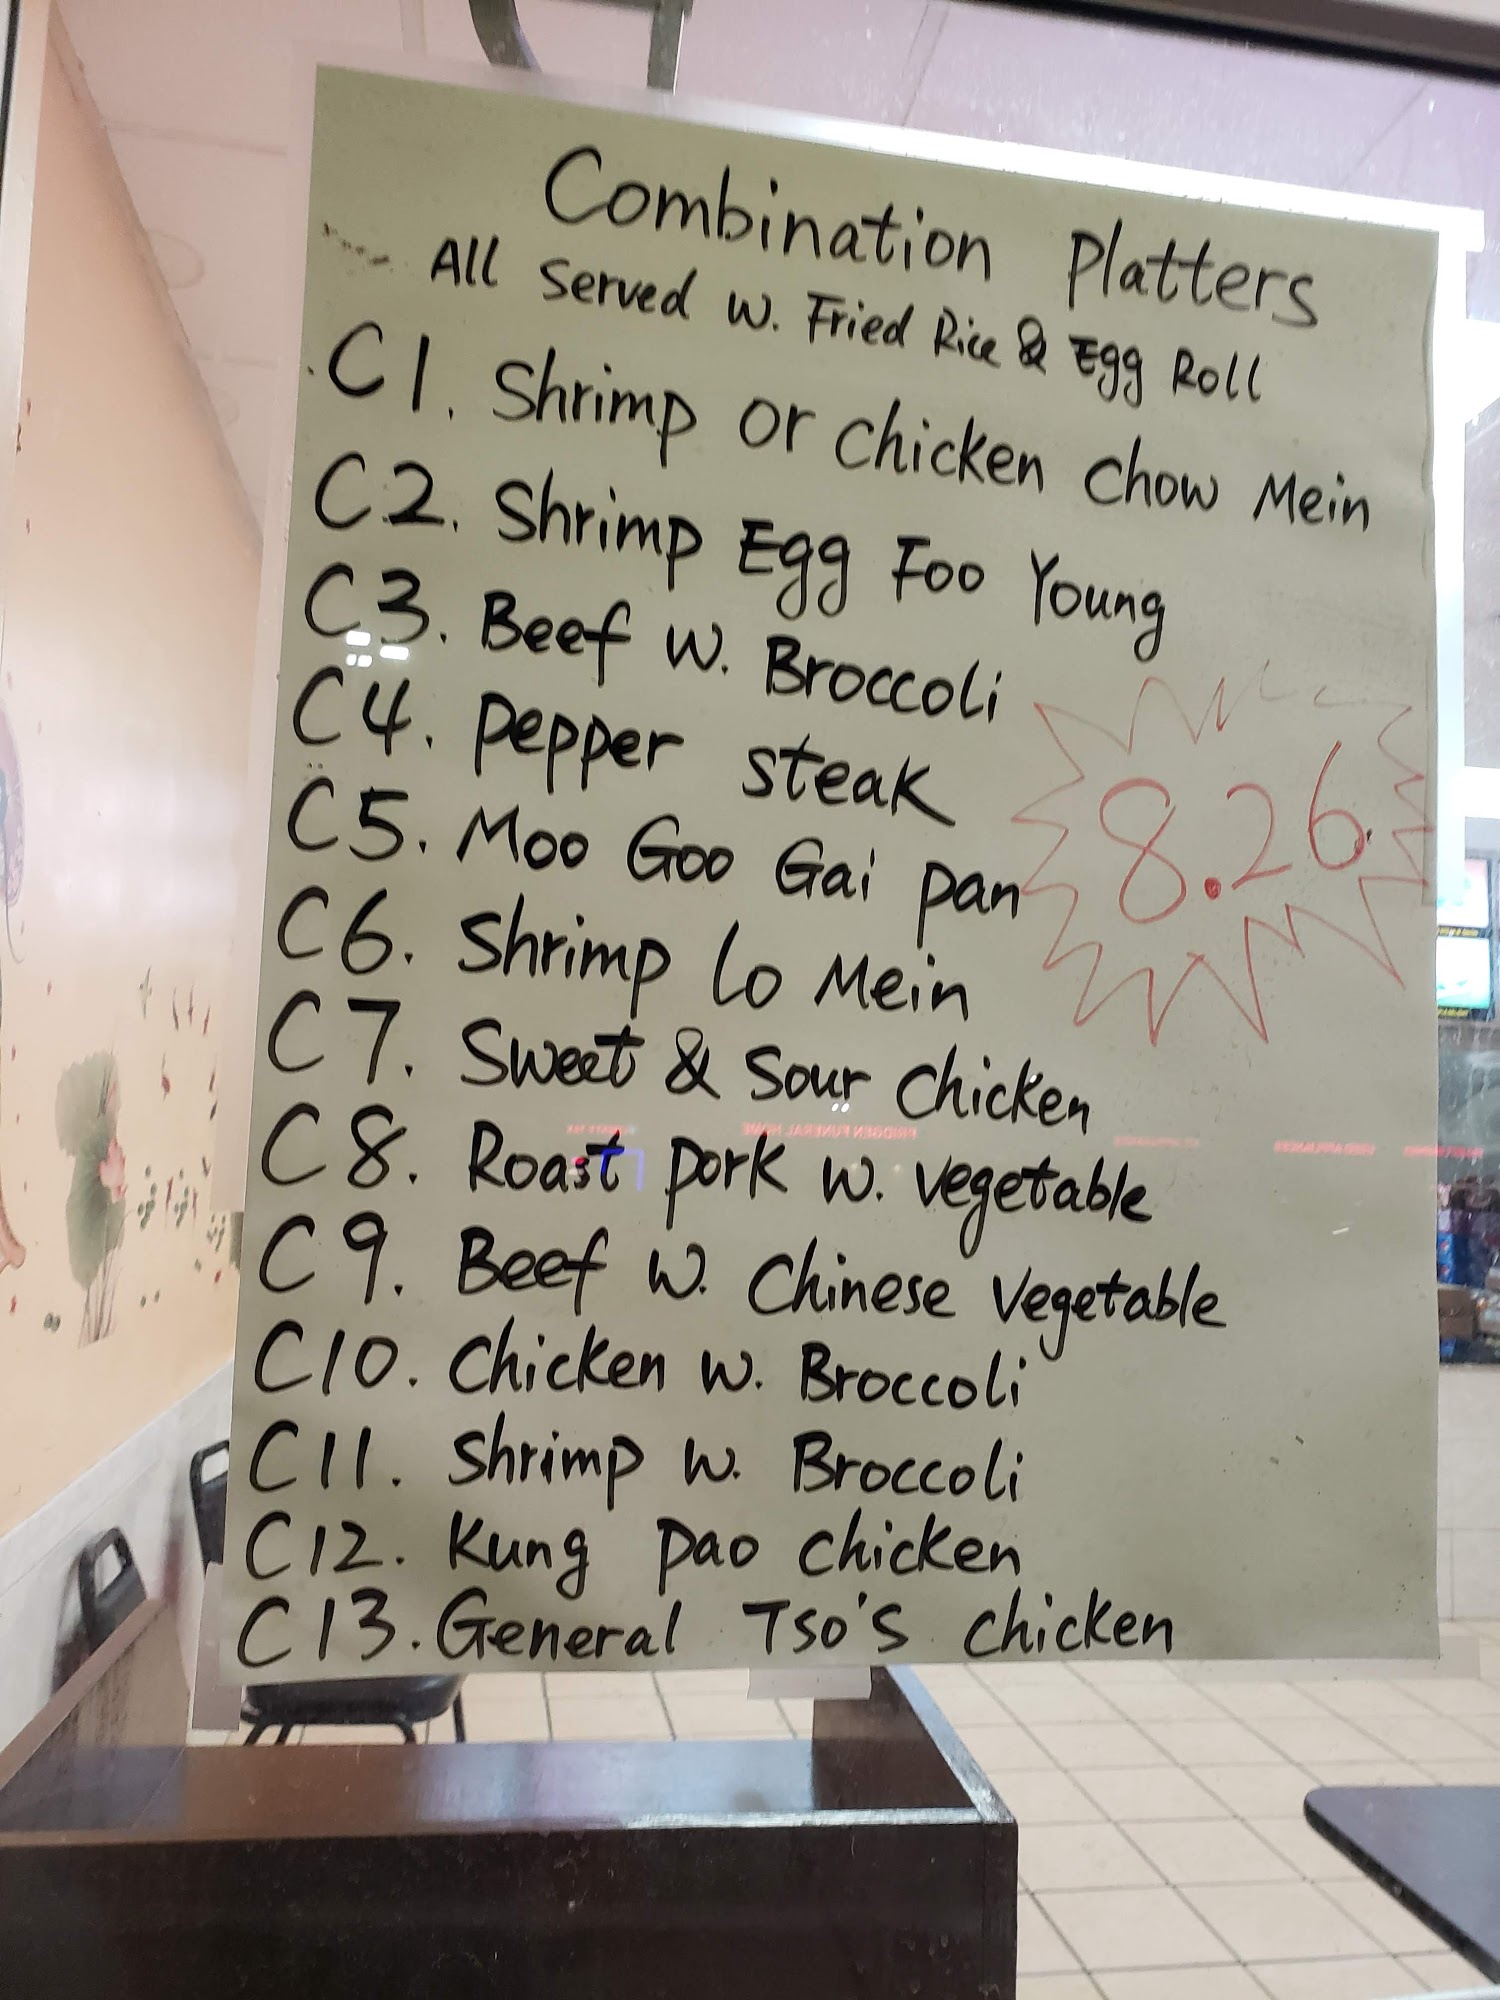 Combination Platters
All Served w. Fried Rice & Egg Roll
C1. Shrimp or Chicken Chow Mein
C2. Shrimp Egg Foo Young
C3. Beef w. Broccoli
C4. Pepper Steak
8.26
C5. Moo Goo Gai Pan
C6. Shrimp Lo Mein
C7. Sweet & Sour Chicken
PRIDGEN FUNERAL HOME
C8. Roast Pork w. Vegetable
C9. Beef w. Chinese Vegetable
C10. Chicken w. Broccoli
C11. Shrimp w. Broccoli
C12. Kung Pao Chicken
C13. General Tso's Chicken